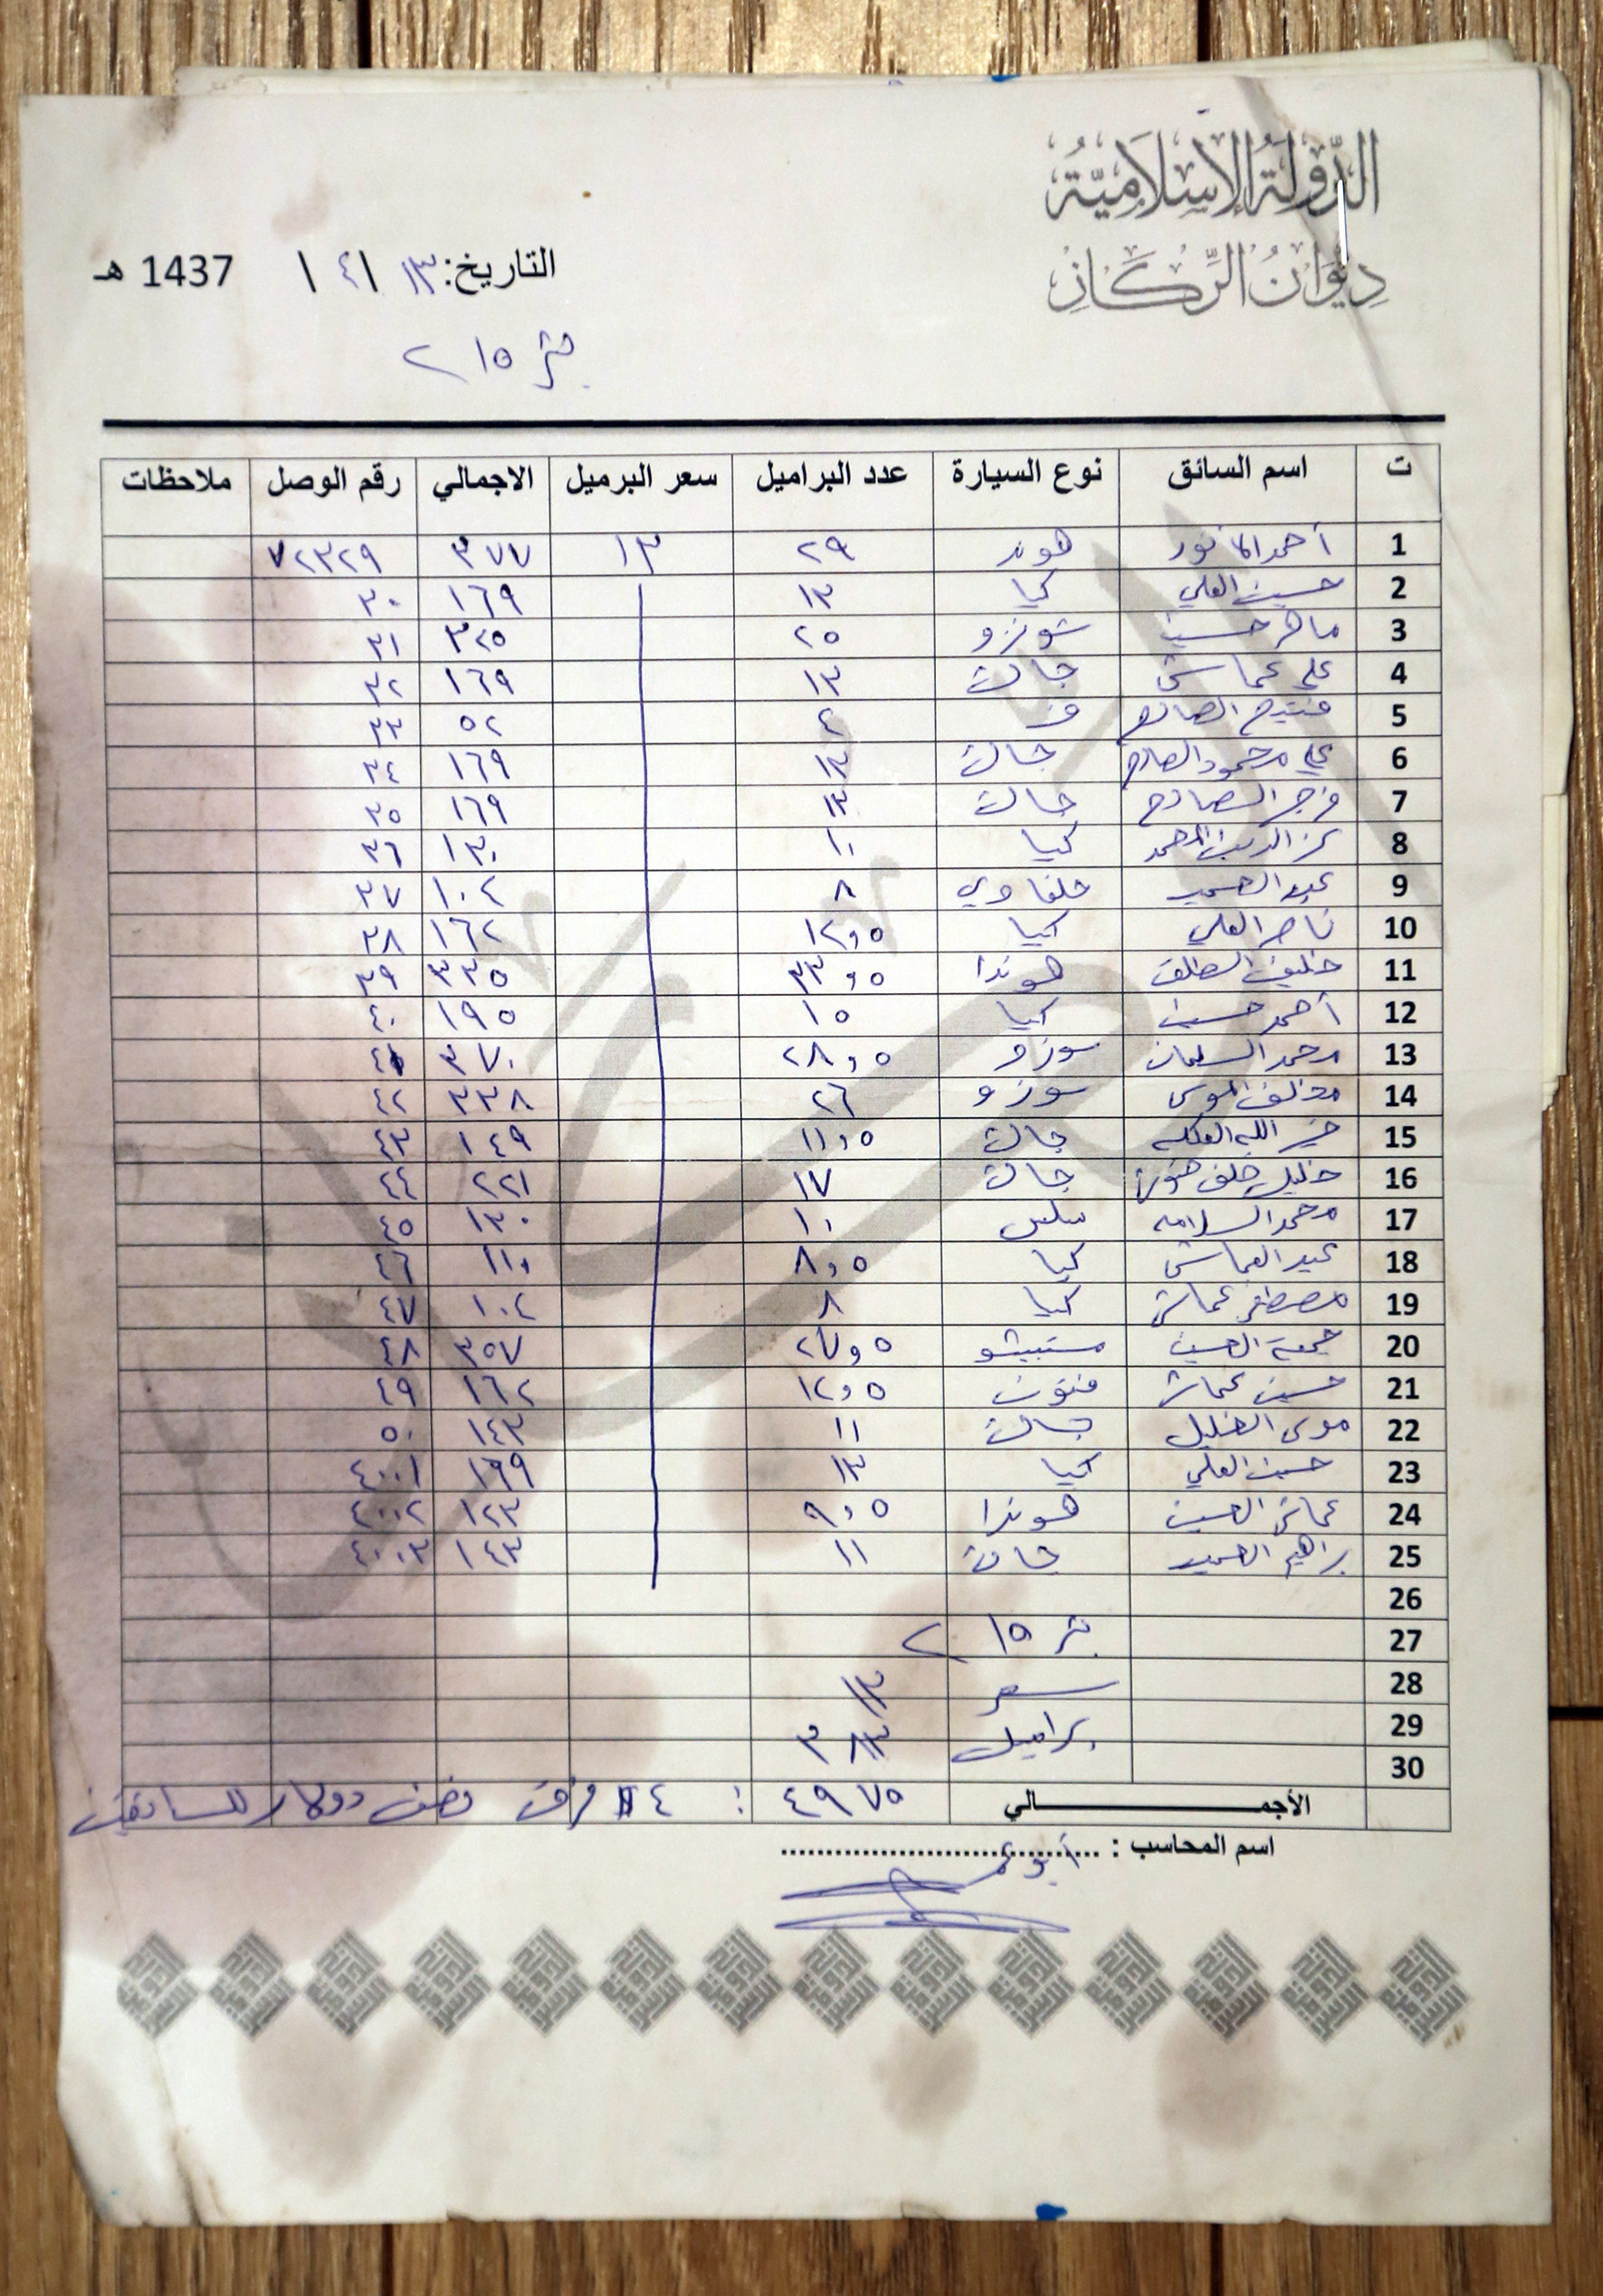 الدَّوْلَةُ الإِسْلَامِيَّةُ
دِيْوَانُ الرِّكَازِ
التاريخ: ١٣ / ٤ / 1437 هـ
بئر ١٥ ٢
ت اسم السائق نوع السيارة عدد البراميل سعر البرميل الاجمالي رقم الوصل ملاحظات
1 أحمد هوند ٢٩ ١٣ ٣٧٧ ٧٢٣٢٩
2 حسين العلي كيا ١٣ ١٦٩ ٣٠
3 ماهر حسين سوزو ٢٥ ٣٢٥ ٣١
4 علي عماش جاك ١٣ ١٦٩ ٣٢
5 الصالح ف ٤ ٥٢ ٣٣
6 علي محمود الصالح جاك ١٣ ١٦٩ ٣٤
7 فرج الصالح جاك ١٣ ١٦٩ ٣٥
8 المحمد كيا ١٠ ١٣٠ ٣٦
9 عبد الحميد حلفاوي ٨ ١٠٤ ٣٧
10 ناصر العلي كيا ١٢,٥ ١٦٢ ٣٨
11 خليف الخلف هوندا ٥, ٣٣٥ ٣٩
12 أحمد حسين كيا ١٥ ١٩٥ ٤٠
13 محمد السليمان سوزو ٢٨,٥ ٣٧٠ ٤١
14 مخلف الموسى سوزو ٢٦ ٣٣٨ ٤٢
15 خير الله العكله جاك ١١,٥ ١٤٩ ٤٣
16 خليل خلف جاك ١٧ ٢٢١ ٤٤
17 محمد السلامه ١٠ ١٣٠ ٤٥
18 عبد العماش كيا ٨,٥ ١١٠ ٤٦
19 مصطفى عماش كيا ٨ ١٠٤ ٤٧
20 جمعة الحسين ٢٧,٥ ٣٥٧ ٤٨
21 حسين عماش فوتون ١٢,٥ ١٦٢ ٤٩
22 موسى الخليل جاك ١١ ١٤٣ ٥٠
23 حسين العلي كيا ١٣ ١٦٩ ٤٠٠١
24 عماش الحسين هوندا ٩,٥ ١٢٣ ٤٠٠٢
25 براهيم الحميد جاك ١١ ١٤٣ ٤٠٠٣
26
27 بئر ١٥ ٢
28 سعر ١٣
29 براميل ٣٨٣
30
الأجمـــــــالي ٤٩٧٥ : ٤ فرق نصف دولار للسائقين
اسم المحاسب : ........................ أبو